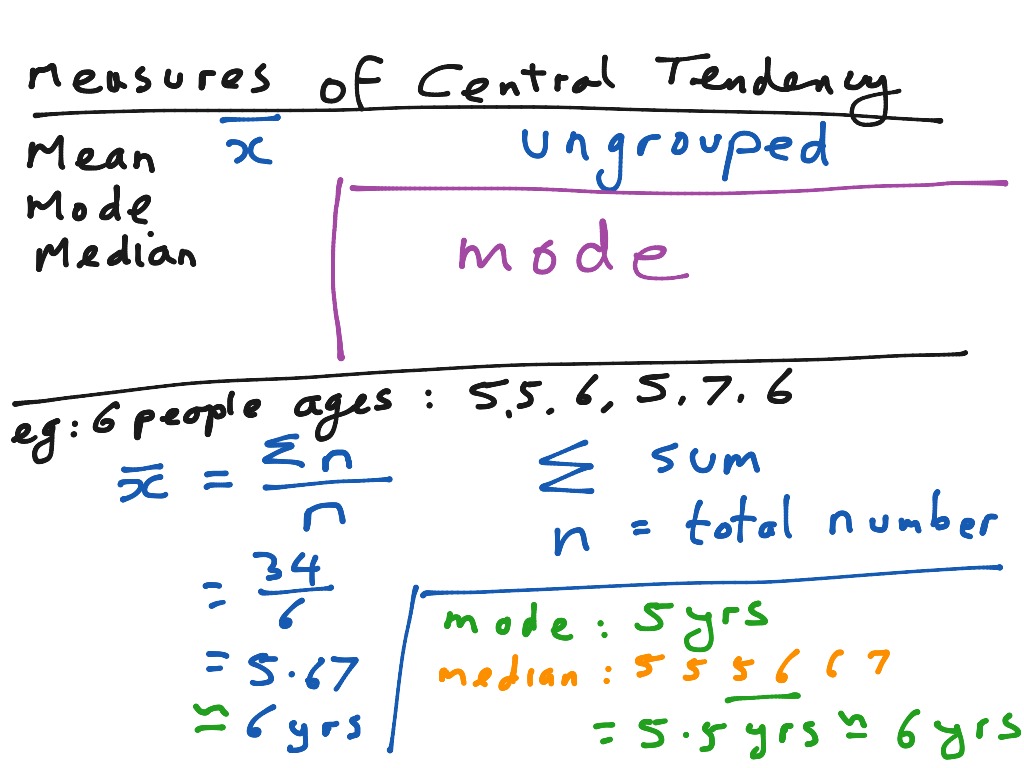 Measures of Central Tendency
Mean x̅ ungrouped
Mode
Median
mode
eg: 6 people ages : 5,5, 6, 5, 7, 6
x̅ = Σn/n
Σ sum
n = total number
= 34/6
= 5.67
≈ 6 yrs
mode : 5 yrs
median : 5 5 5 6 6 7
= 5.5 yrs ≈ 6 yrs